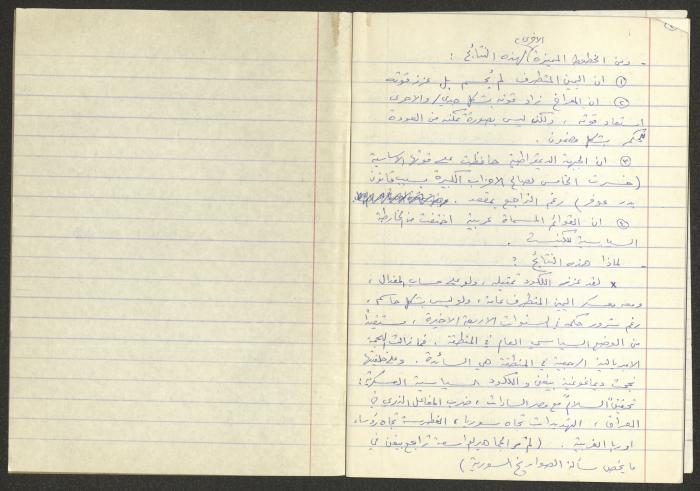 الأخرى
- ومن الخطوط المميزة لهذه النتائج :
① ان اليمين المتطرف لم يُحسم بل عزز قوته
② ان المعراخ زاد قوته بشكل جدي، والاحرى
استعاد قوته ، ولكن ليس بصورة تمكنه من العودة
للحكم بشكل مضمون .
③ ان الجبهة الديمقراطية حافظت على قوتها الاساسية
(خسرت الخامس لصالح الاحزاب الكبيرة بسبب قانون
بدر عوفر) رغم التراجع بمقعد .
④ ان القوائم المسماة عربية اختفت من الخارطة
السياسية للكنيست .
- لماذا هذه النتائج ؟
x لقد عزز الليكود تمثيله ، ولو على حساب المفدال ،
ومعه معسكر اليمين المتطرف عامة ، ولو ليس بشكل حاسم ،
رغم مرور حكمه في السنوات الاربعة الاخيرة ، مستفيدًا
من الوضع السياسي العام في المنطقة . فما زالت الهجمة
الامبريالية الرجعية في المنطقة هي السائدة . وعلى خلفيتها
نجحت ديماغوغية بيغن و الليكود السياسية العسكرية :
تحقيق "السلام" مع مصر السادات ، ضرب المفاعل الذري في
العراق ، التهديدات تجاه سوريا ، الغطرسة تجاه رؤساء
اوربا الغربية . (لم تر الجماهير الواسعة تراجع بيغن في
ما يخص مسألة الصواريخ السورية)